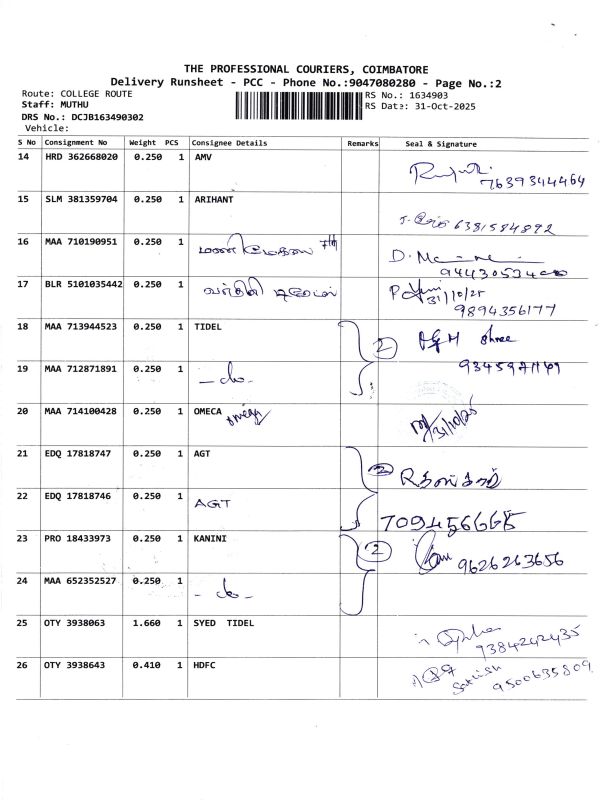 THE PROFESSIONAL COURIERS, COIMBATORE
Delivery Runsheet - PCC - Phone No.:9047080280 - Page No.:2
Route: COLLEGE ROUTE RS No.: 1634903
Staff: MUTHU RS Date: 31-Oct-2025
DRS No.: DCJB163490302
Vehicle:
S No Consignment No Weight PCS Consignee Details Remarks Seal & Signature
14 HRD 362668020 0.250 1 AMV
7639344464
15 SLM 381359704 0.250 1 ARIHANT
6381584892
16 MAA 710190951 0.250 1 7th
D.
17 BLR 5101035442 0.250 1 வர்தினி
31/10/25
9894356177
18 MAA 713944523 0.250 1 TIDEL 2 Shree
19 MAA 712871891 0.250 1 -do-
20 MAA 714100428 0.250 1 OMECA omega 31/10/25
21 EDQ 17818747 0.250 1 AGT 2
22 EDQ 17818746 0.250 1 AGT
23 PRO 18433973 0.250 1 KANINI 2 9626263656
24 MAA 652352527 0.250 1 -do-
25 OTY 3938063 1.660 1 SYED TIDEL
9384242435
26 OTY 3938643 0.410 1 HDFC
Satish 9500635809